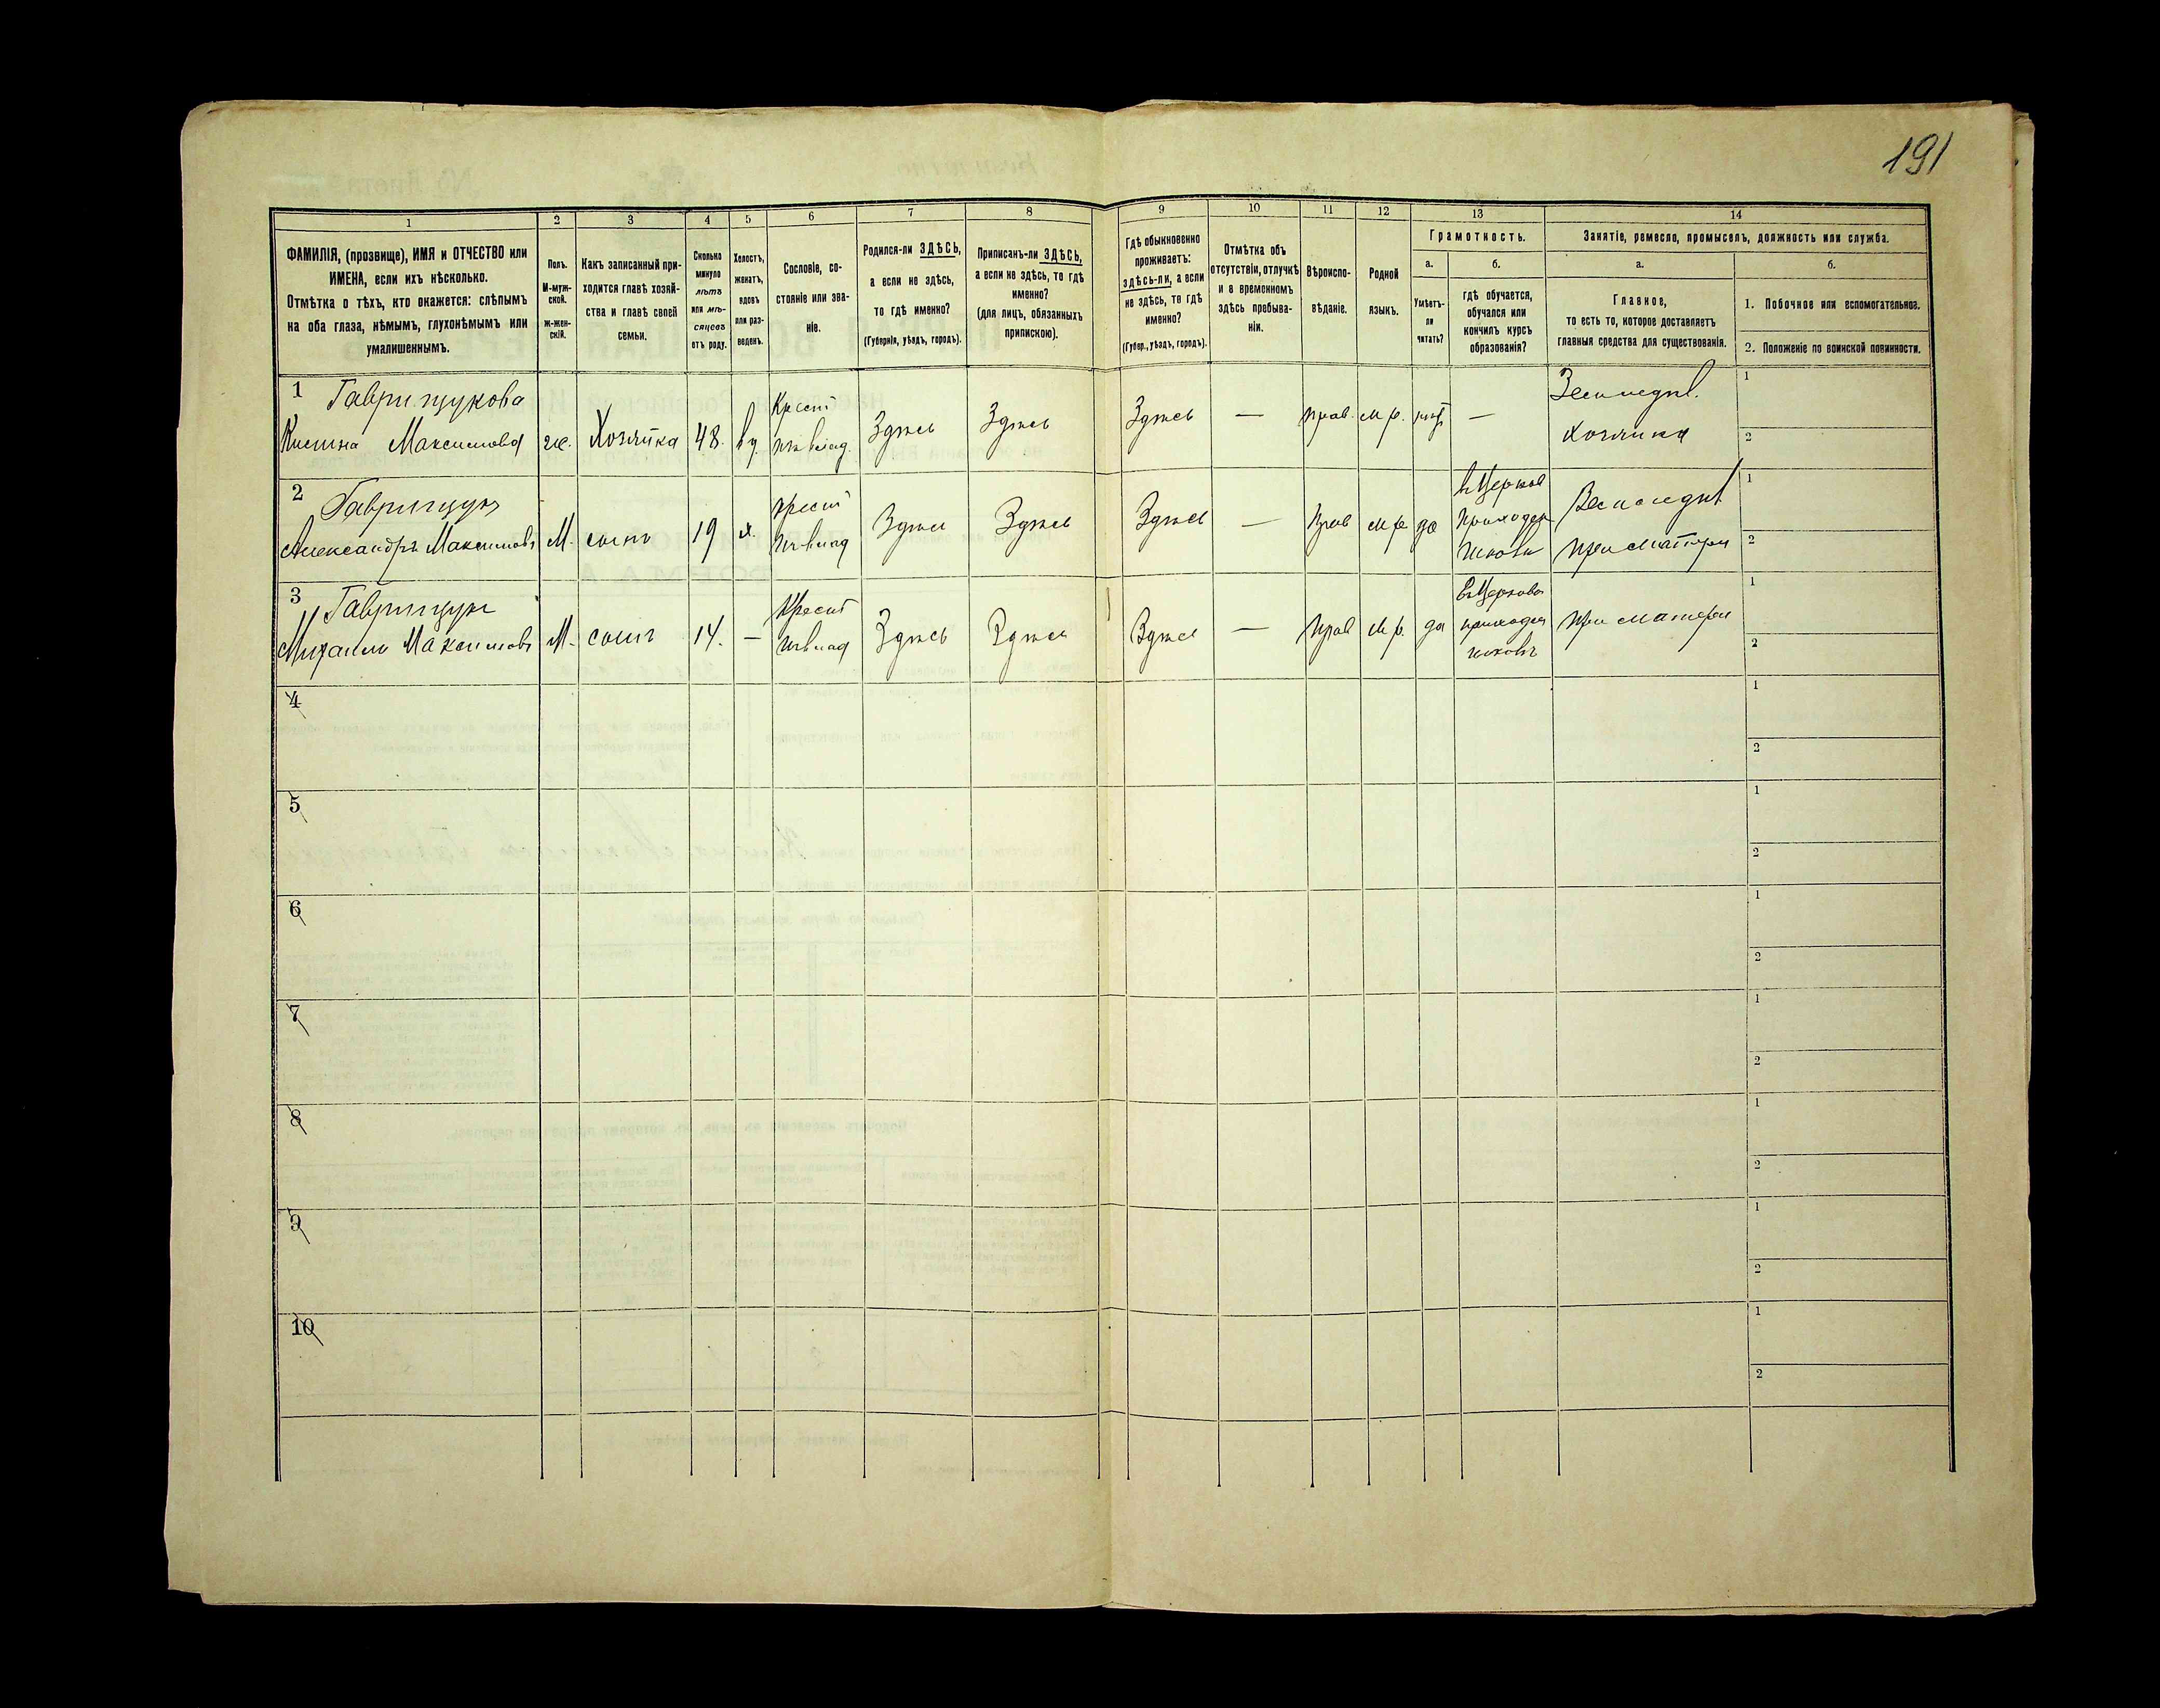 191
1 2 3 4 5 6 7 8 9 10 11 12 13 14
ФАМИЛІЯ, (прозвище), ИМЯ и ОТЧЕСТВО или
ИМЕНА, если ихъ нѣсколько.
Отмѣтка о тѣхъ, кто окажется: слѣпымъ
на оба глаза, нѣмымъ, глухонѣмымъ или
умалишеннымъ.
Полъ.
М-муж-
ской.
ж-жен-
скій.
Какъ записанный при-
ходится главѣ хозяй-
ства и главѣ своей
семьи.
Сколько
минуло
лѣтъ
или мѣ-
сяцевъ
отъ роду.
Холостъ,
женатъ,
вдовъ
или раз-
веденъ.
Сословіе, со-
стояніе или зва-
ніе.
Родился-ли ЗДѢСЬ,
а если не здѣсь,
то гдѣ именно?
(Губернія, уѣздъ, городъ).
Приписанъ-ли ЗДѢСЬ,
а если не здѣсь, то гдѣ
именно?
(для лицъ, обязанныхъ
припискою).
Гдѣ обыкновенно
проживаетъ:
здѣсь-ли, а если
не здѣсь, то гдѣ
именно?
(Губер., уѣздъ, городъ).
Отмѣтка объ
отсутствіи, отлучкѣ
и о временномъ
здѣсь пребыва-
ніи.
Вѣроиспо-
вѣданіе.
Родной
языкъ.
Грамотность.
а.
Умѣетъ-
ли
читать?
б.
гдѣ обучается,
обучался или
кончилъ курсъ
образованія?
Занятіе, ремесло, промыселъ, должность или служба.
а.
Главное,
то есть то, которое доставляетъ
главныя средства для существованія.
б.
1. Побочное или вспомогательное.
2. Положеніе по воинской повинности.
1 Гаврищукова
Максимова ж. Хозяйка 48. вд. Крест Здѣсь Здѣсь Здѣсь — прав. м р. —
хозяйка
1
2
2 Гаврищукъ
Александръ Максимовъ М. сынъ 19 х. крест Здѣсь Здѣсь Здѣсь — прав м р да
при матери
1
2
3 Гаврищукъ
Михаилъ Максимовъ М. сынъ 14. — Крест Здѣсь Здѣсь Здѣсь — прав м р. да
при матери
1
2
4
1
2
5
1
2
6
1
2
7
1
2
8
1
2
9
1
2
10
1
2